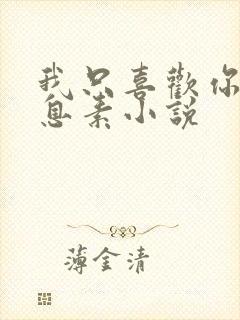 我只喜歡你
息素小說
薄金清